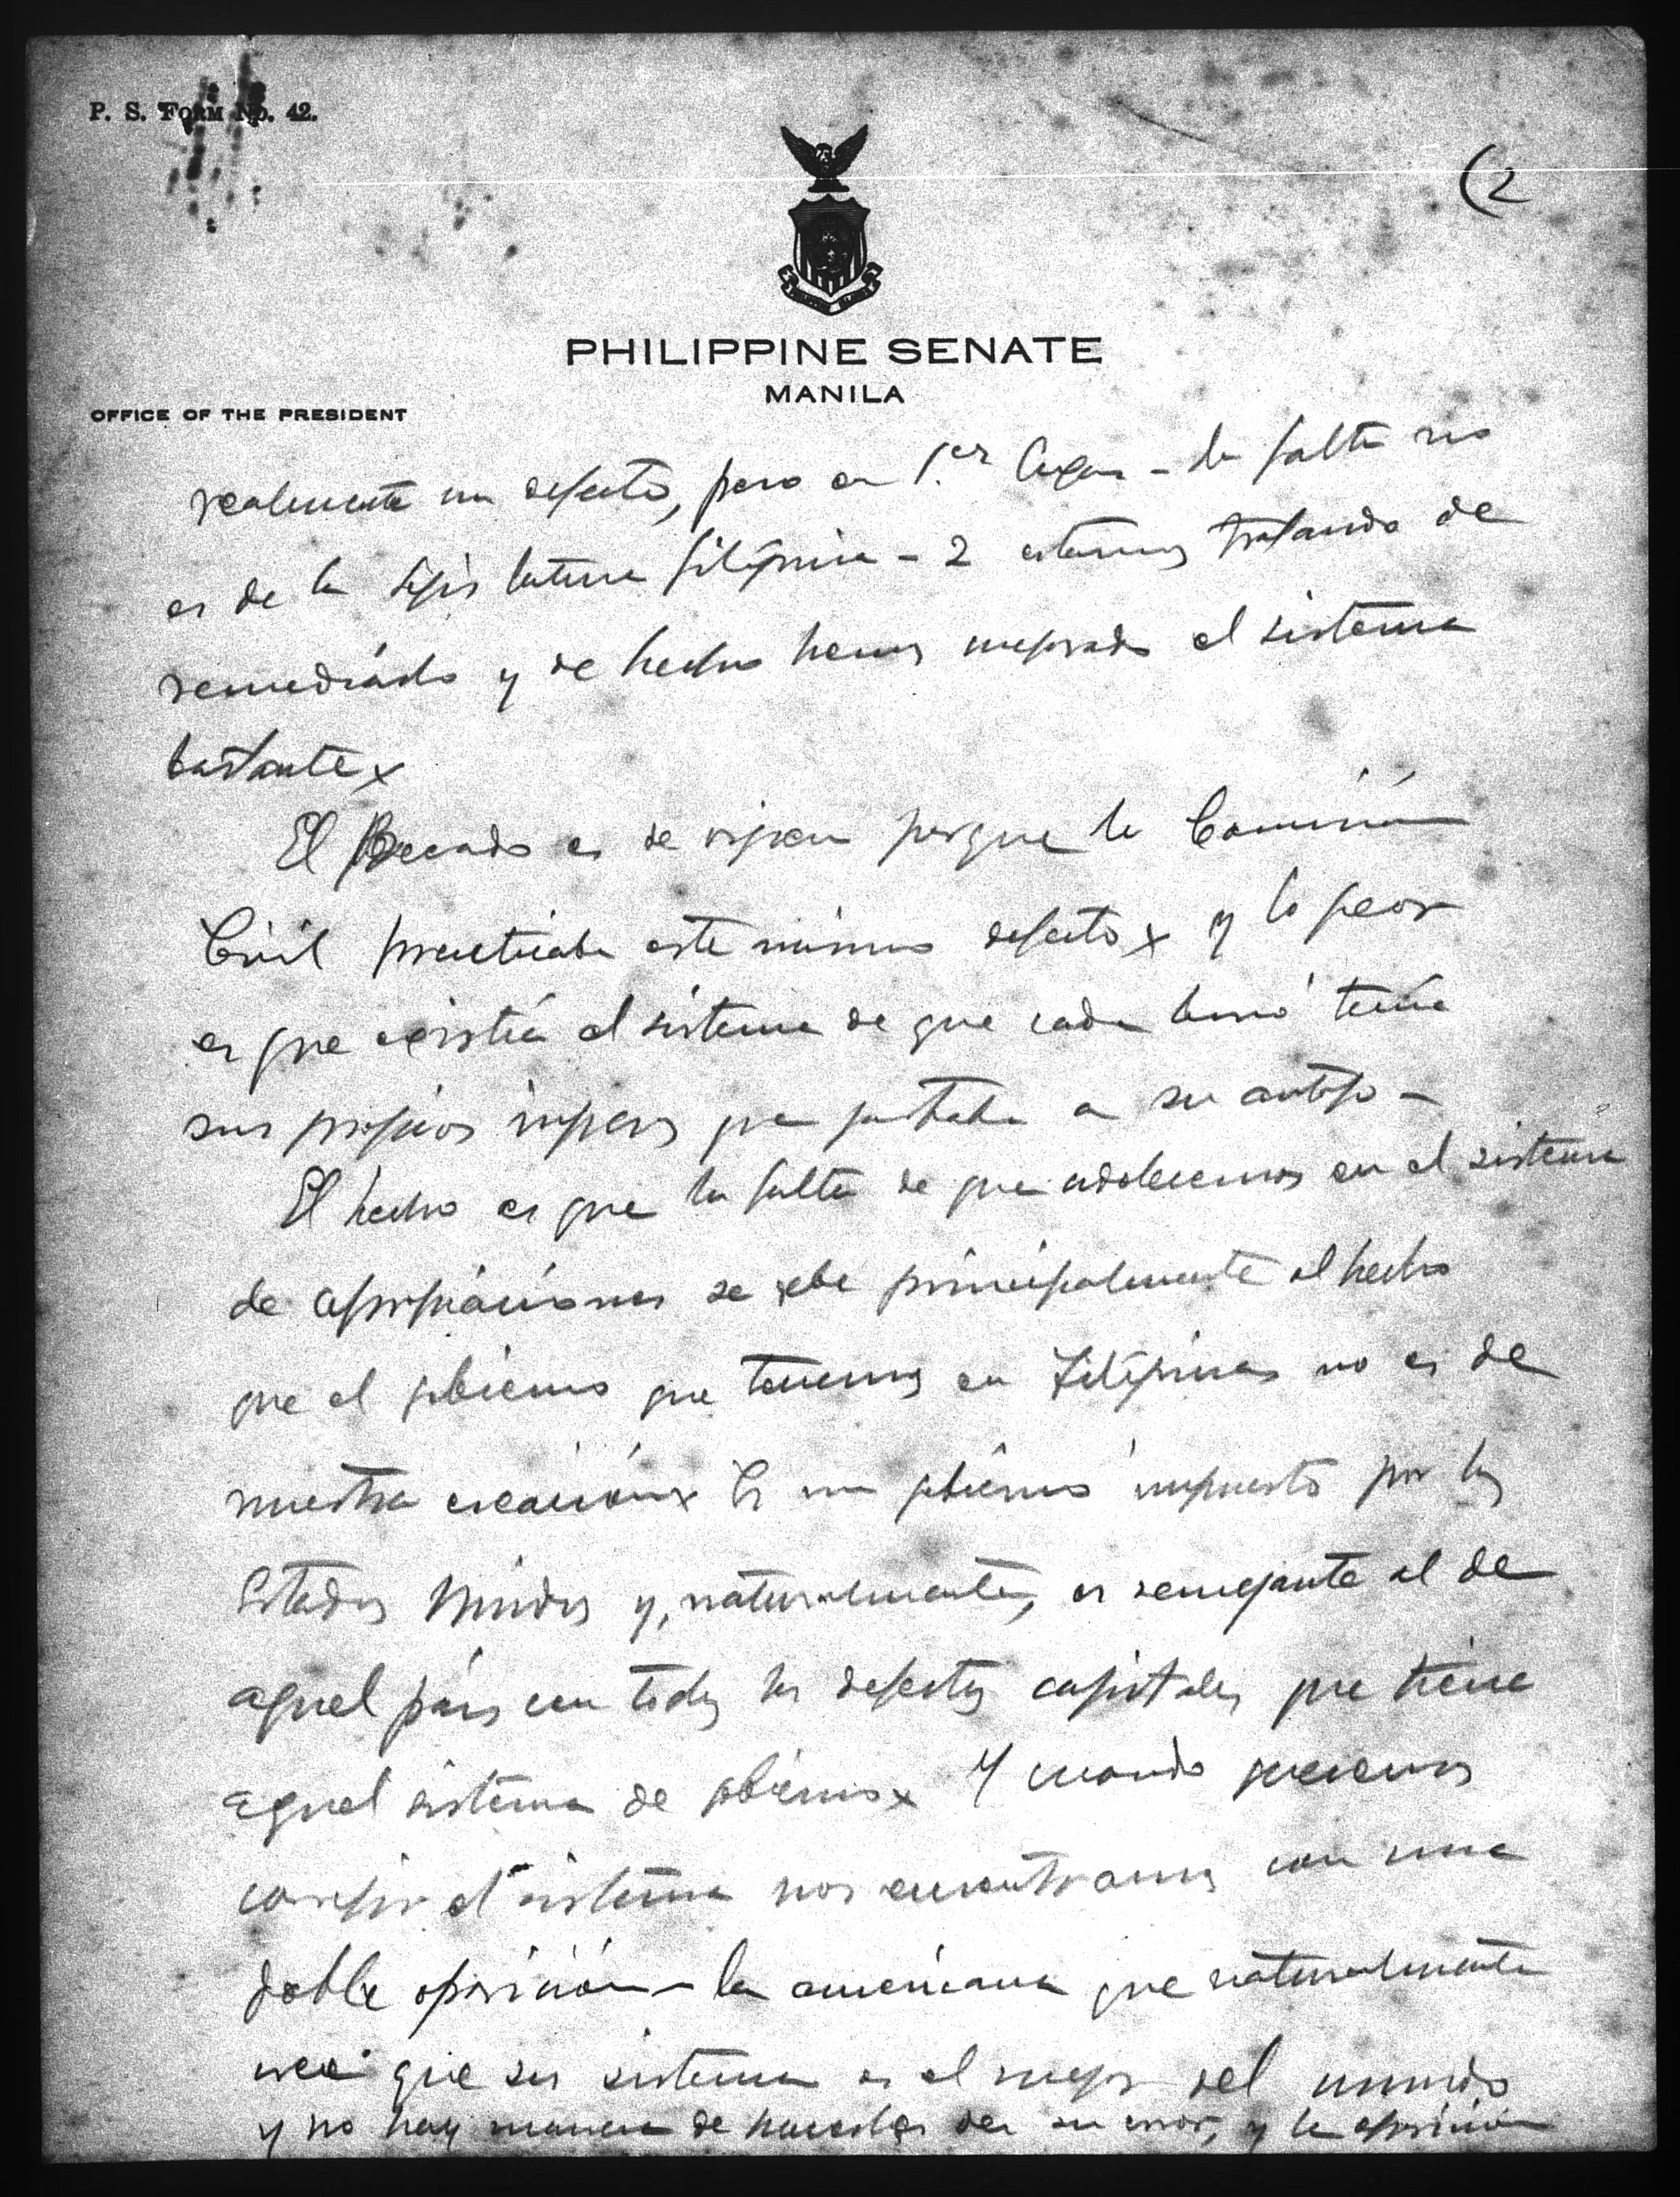 P. S. FORM No. 42.
(2
PHILIPPINE SENATE
MANILA
OFFICE OF THE PRESIDENT
realmente un defecto, pero en 1.er lugar – la falta no
es de la Legislatura filipina – 2 estamos tratando de
remediarlo y de hecho hemos mejorado el sistema
bastante x
El Pecado es de origen porque la Comisión
Civil practicaba este mismo defecto x y lo peor
es que existía el sistema de que cada buró tenía
sus propios que gastaba a su antojo –
El hecho es que la falta de que adolecemos en el sistema
de apropiaciones se debe principalmente al hecho
que el gobierno que tenemos en Filipinas no es de
nuestra creación x Es un gobierno impuesto por los
Estados Unidos y, naturalmente, es semejante al de
aquel país con todos los defectos capitales que tiene
aquel sistema de gobierno x Y cuando queremos
corregir el sistema nos encontramos con una
doble oposición – la americana que naturalmente
cree que su sistema es el mejor del mundo
y no hay manera de hacerles ver su error, y la oposición